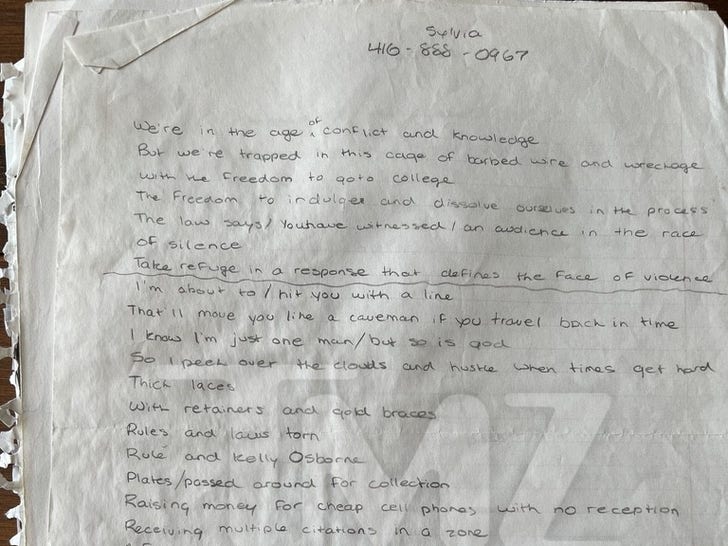 Sylvia
416-888-0967
We're in the age of conflict and knowledge
But we're trapped in this cage of barbed wire and wreckage
With the Freedom to goto college
The Freedom to indulge and dissolve ourselves in the process
The law says/ You have witnessed/ an audience in the race
of silence
Take refuge in a response that defines the face of violence
I'm about to / hit you with a line
That'll move you like a caveman if you travel back in time
I know I'm just one man/but so is god
So I peek over the clouds and hustle when times get hard
Thick laces
With retainers and gold braces
Rules and laws torn
Rule and Kelly Osborne
Plates/passed around for collection
Raising money for cheap cell phones with no reception
Receiving multiple citations in a zone
TMZ